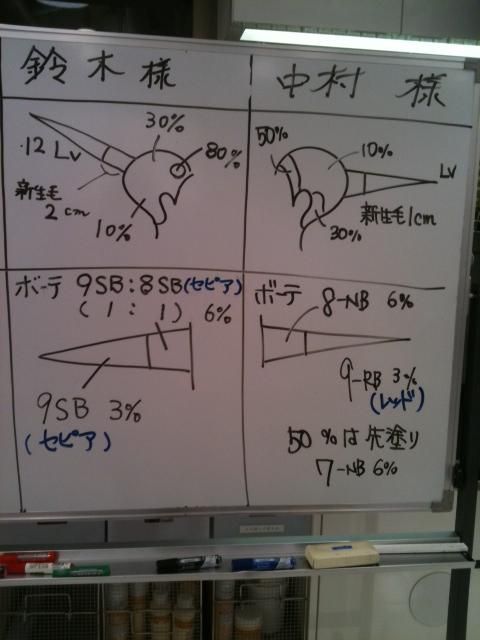 鈴木様
30%
80%
12 Lv
新生毛
2cm
10%
中村 様
50%
10%
Lv
新生毛1cm
30%
ボーテ 9SB:8SB(セピア)
(1:1) 6%
9SB 3%
(セピア)
ボーテ 8-NB 6%
9-RB 3%
(レッド)
50%は先塗り
7-NB 6%